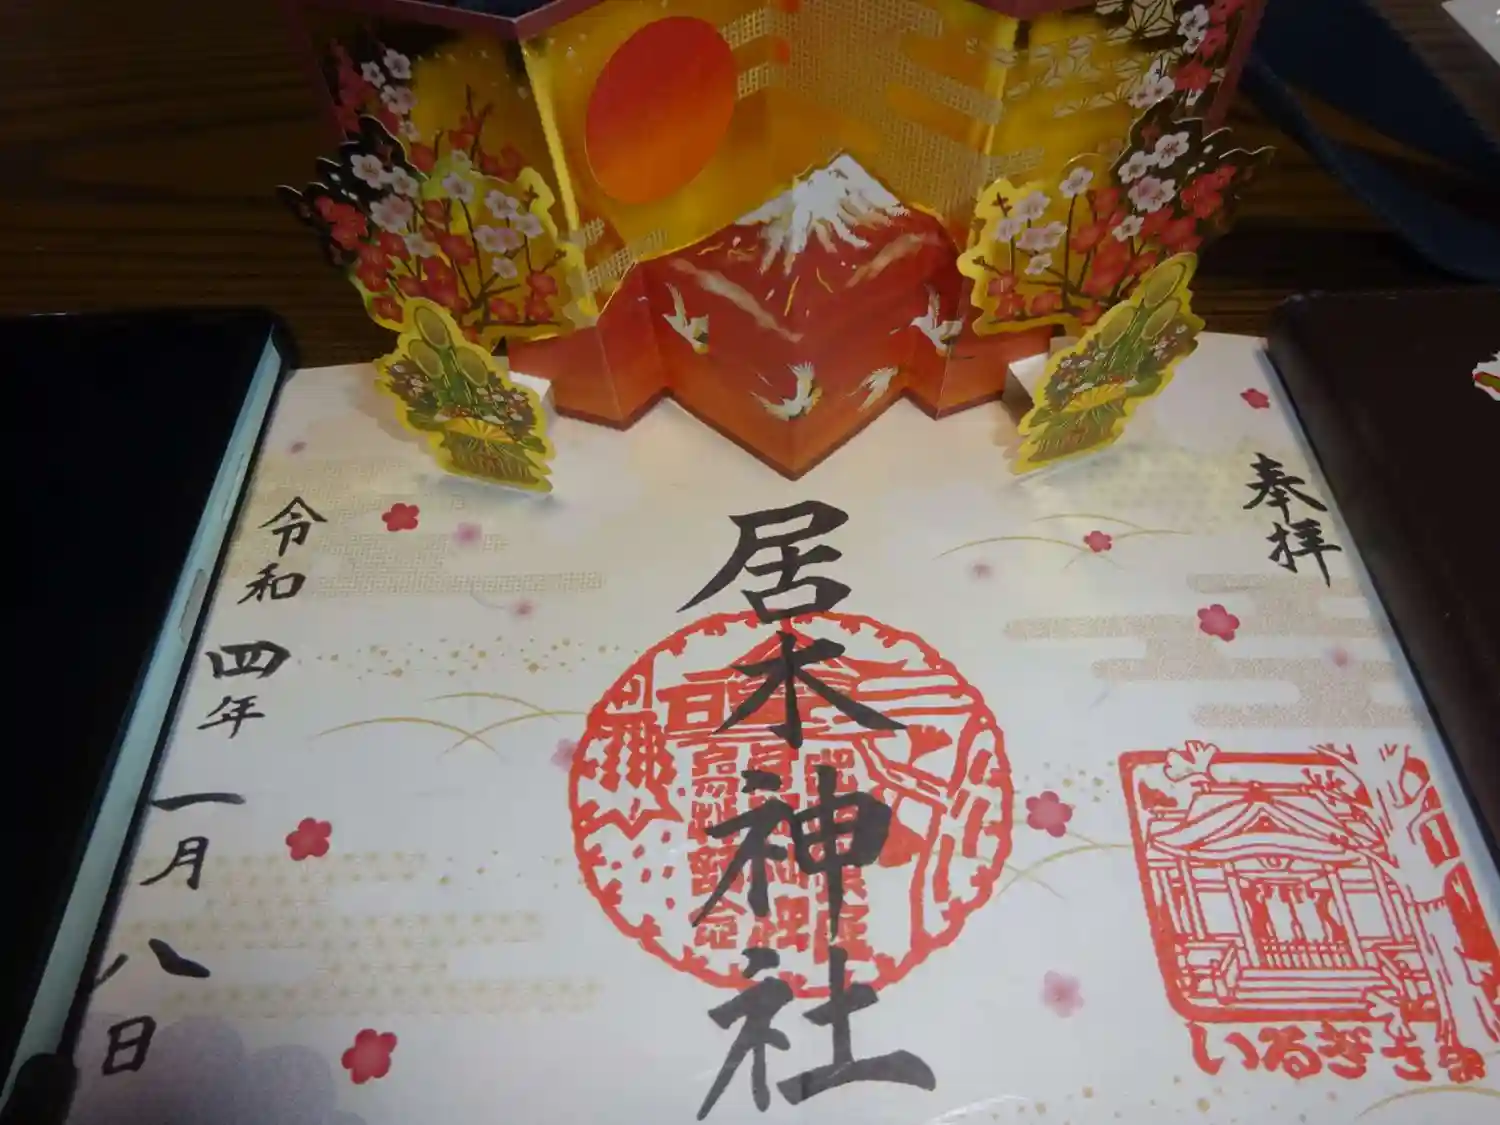 奉拝
居木神社
令和四年一月八日
いるぎさま